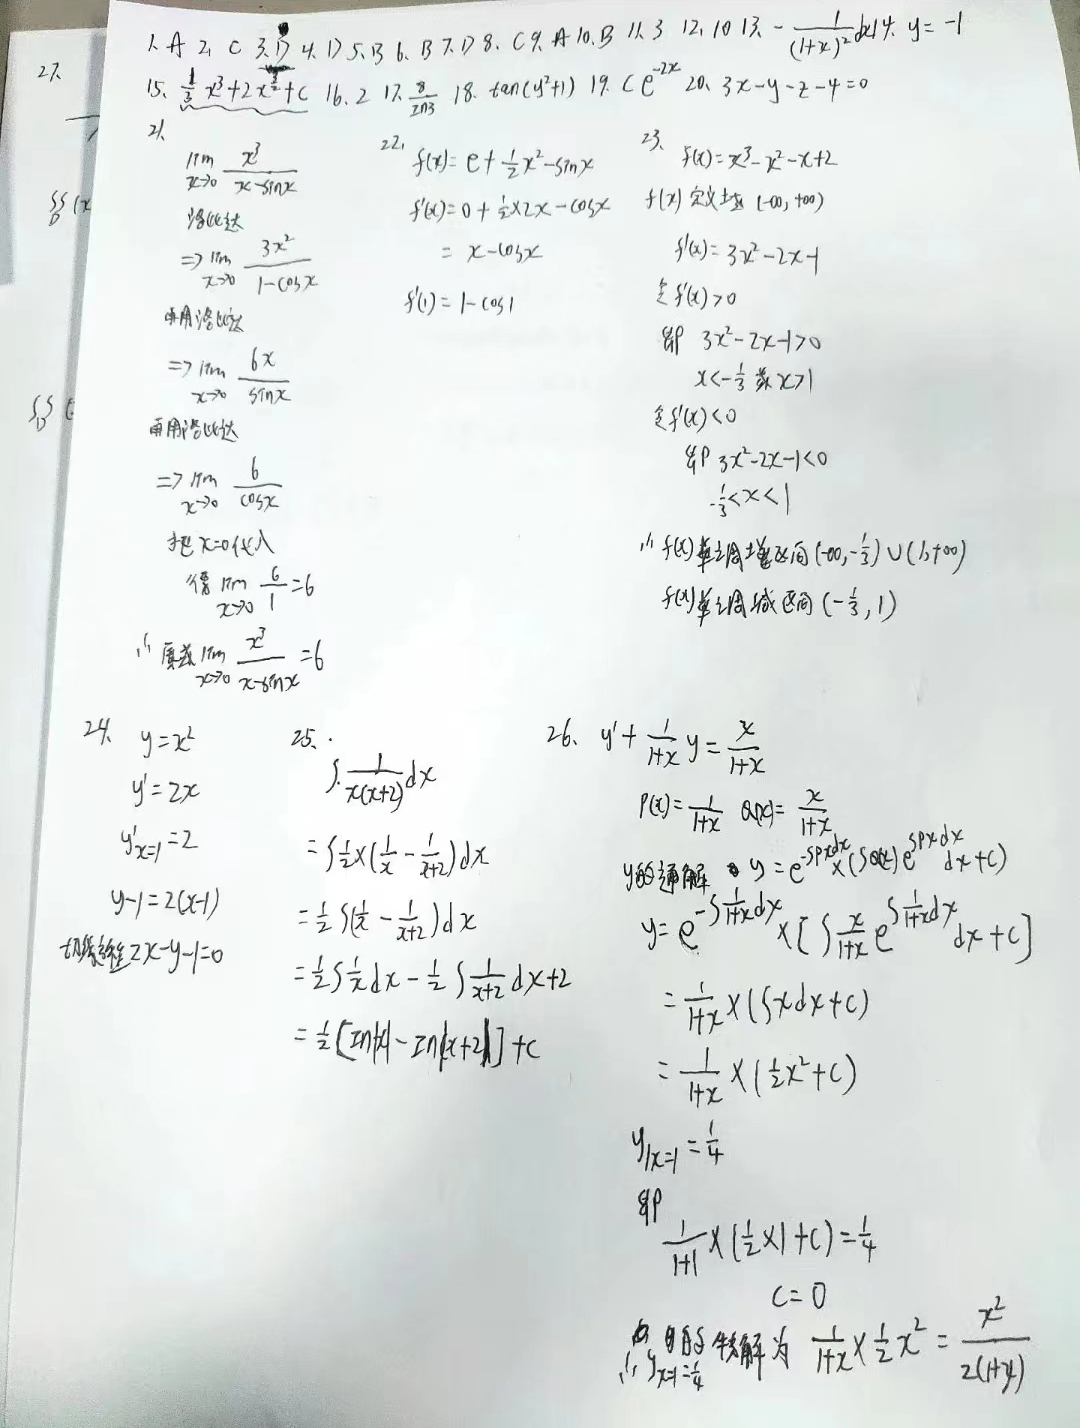 1. A 2. C 3. D 4. D 5. B 6. B 7. D 8. C 9. A 10. B 11. 3 12. 10 13. -1/(1+x)² dx 14. y=-1
15. 1/3 x³+2x^(3/2)+C 16. 2 17. 8/ln3 18. tan(y²+1) 19. Ce^(-2x) 20. 3x-y-z-4=0
21.
lim x→0 x³/(x-sinx)
洛必达
=> lim x→0 3x²/(1-cosx)
再用洛必达
=> lim x→0 6x/sinx
再用洛必达
=> lim x→0 6/cosx
把x=0代入
得 lim x→0 6/1=6
∴原式 lim x→0 x³/(x-sinx)=6
22. f(x)=e+1/2x²-sinx
f'(x)=0+1/2×2x-cosx
= x-cosx
f'(1)=1-cos1
23. f(x)=x³-x²-x+2
f(x)定义域(-∞,+∞)
f'(x)=3x²-2x-1
令f'(x)>0
即 3x²-2x-1>0
x<-1/3 或 x>1
令f'(x)<0
即 3x²-2x-1<0
-1/3<x<1
∴f(x)单调增区间(-∞,-1/3)∪(1,+∞)
f(x)单调减区间(-1/3,1)
24. y=x²
y'=2x
y'x=1=2
y-1=2(x-1)
切线方程2x-y-1=0
25.
∫1/(x(x+2))dx
=∫1/2×(1/x-1/(x+2))dx
=1/2∫(1/x-1/(x+2))dx
=1/2∫1/x dx-1/2∫1/(x+2)dx+2
=1/2[ln|x|-ln|x+2|]+C
26. y'+1/(1+x) y=x/(1+x)
P(x)=1/(1+x) Q(x)=x/(1+x)
y的通解 y=e^(-∫Pxdx)×(∫Q(x)e^(∫Pxdx)dx+C)
y=e^(-∫1/(1+x)dx)×[∫x/(1+x) e^(∫1/(1+x)dx)dx+C]
=1/(1+x)×(∫xdx+C)
=1/(1+x)×(1/2x²+C)
y|x=1=1/4
即
1/(1+1)×(1/2×1+C)=1/4
C=0
∴yx=1=1/4的特解为 1/(1+x)×1/2x²=x²/(2(1+x))
27.
∫∫D(x
∫∫D